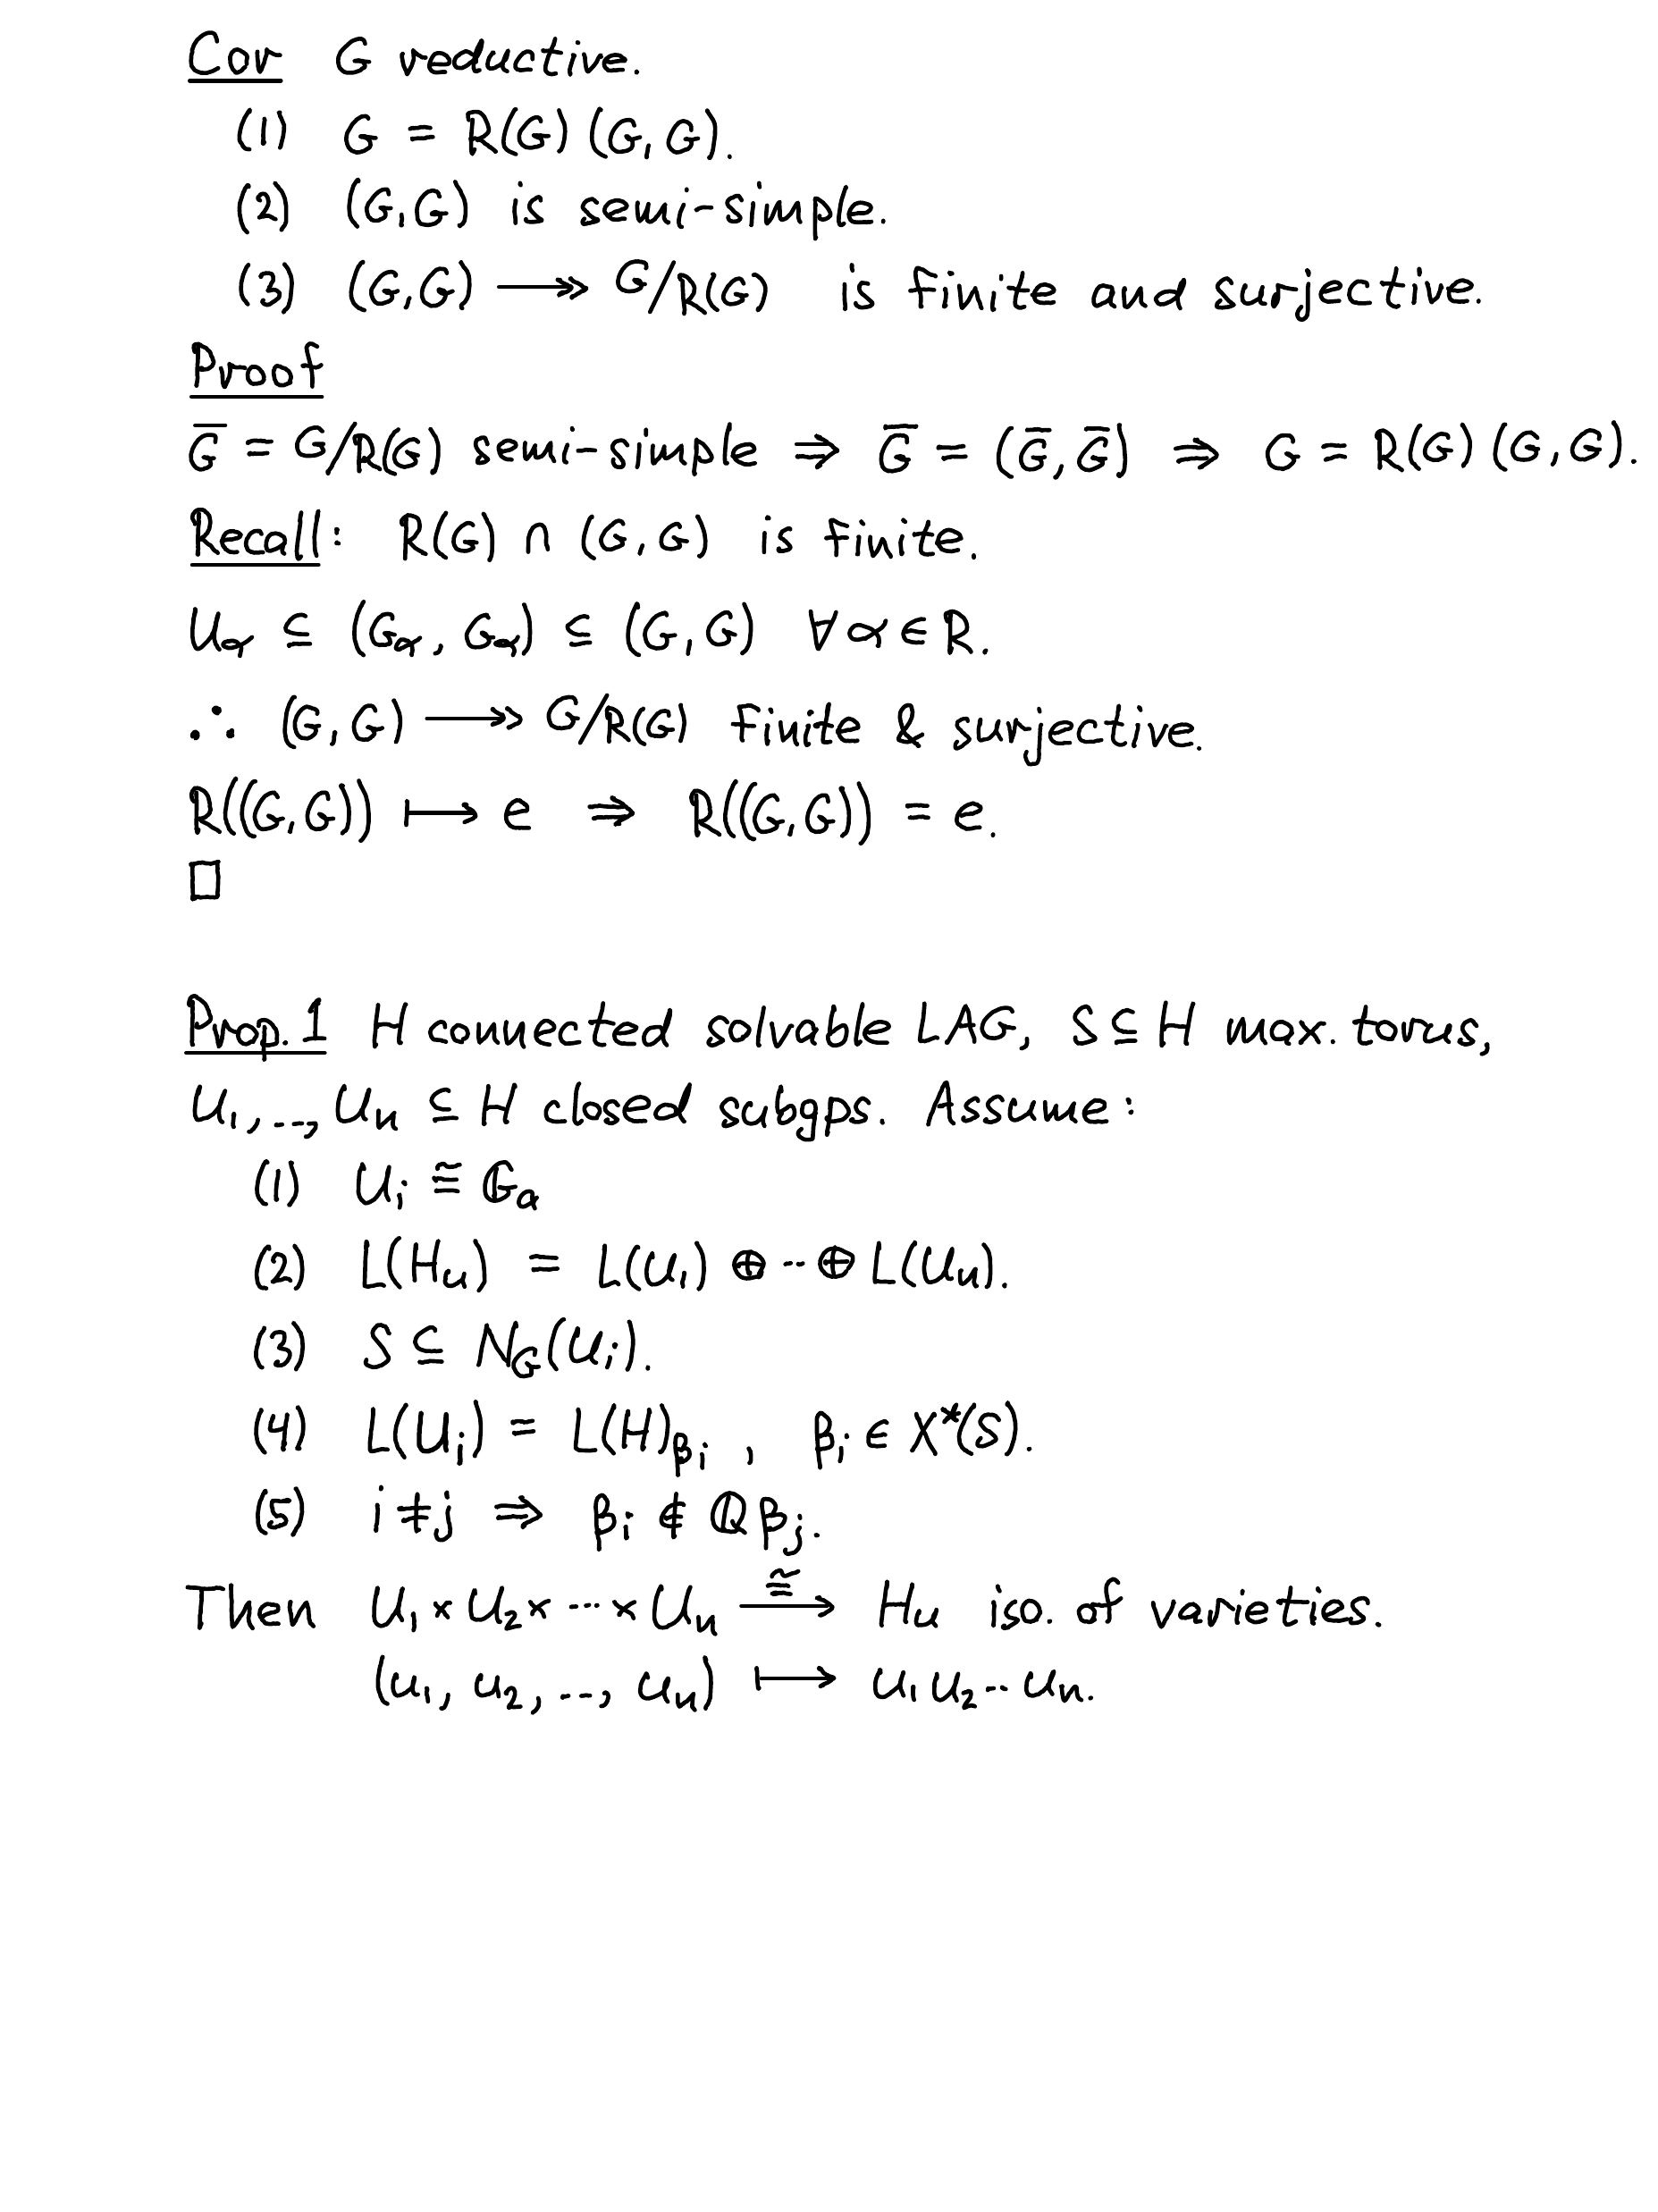 Cor G reductive.
(1) G = R(G) (G, G).
(2) (G, G) is semi-simple.
(3) (G, G) ↠ G/R(G) is finite and surjective.
Proof
G̅ = G/R(G) semi-simple ⇒ G̅ = (G̅, G̅) ⇒ G = R(G) (G, G).
Recall: R(G) ∩ (G, G) is finite.
U_α ⊆ (G_α, G_α) ⊆ (G, G) ∀ α ∈ R.
∴ (G, G) ↠ G/R(G) finite & surjective.
R((G, G)) ↦ e ⇒ R((G, G)) = e.
□
Prop. 1 H connected solvable LAG, S ⊆ H max. torus,
U₁, .., Uₙ ⊆ H closed subgps. Assume:
(1) U_i ≅ 𝔾_a
(2) L(H_u) = L(U₁) ⊕ ·· ⊕ L(Uₙ).
(3) S ⊆ N_G(U_i).
(4) L(U_i) = L(H)_{β_i} , β_i ∈ X*(S).
(5) i ≠ j ⇒ β_i ∉ ℚβ_j.
Then U₁ × U₂ × ··· × Uₙ ≅⟶ H_u iso. of varieties.
(u₁, u₂, .., uₙ) ⟼ u₁ u₂ ·· uₙ.